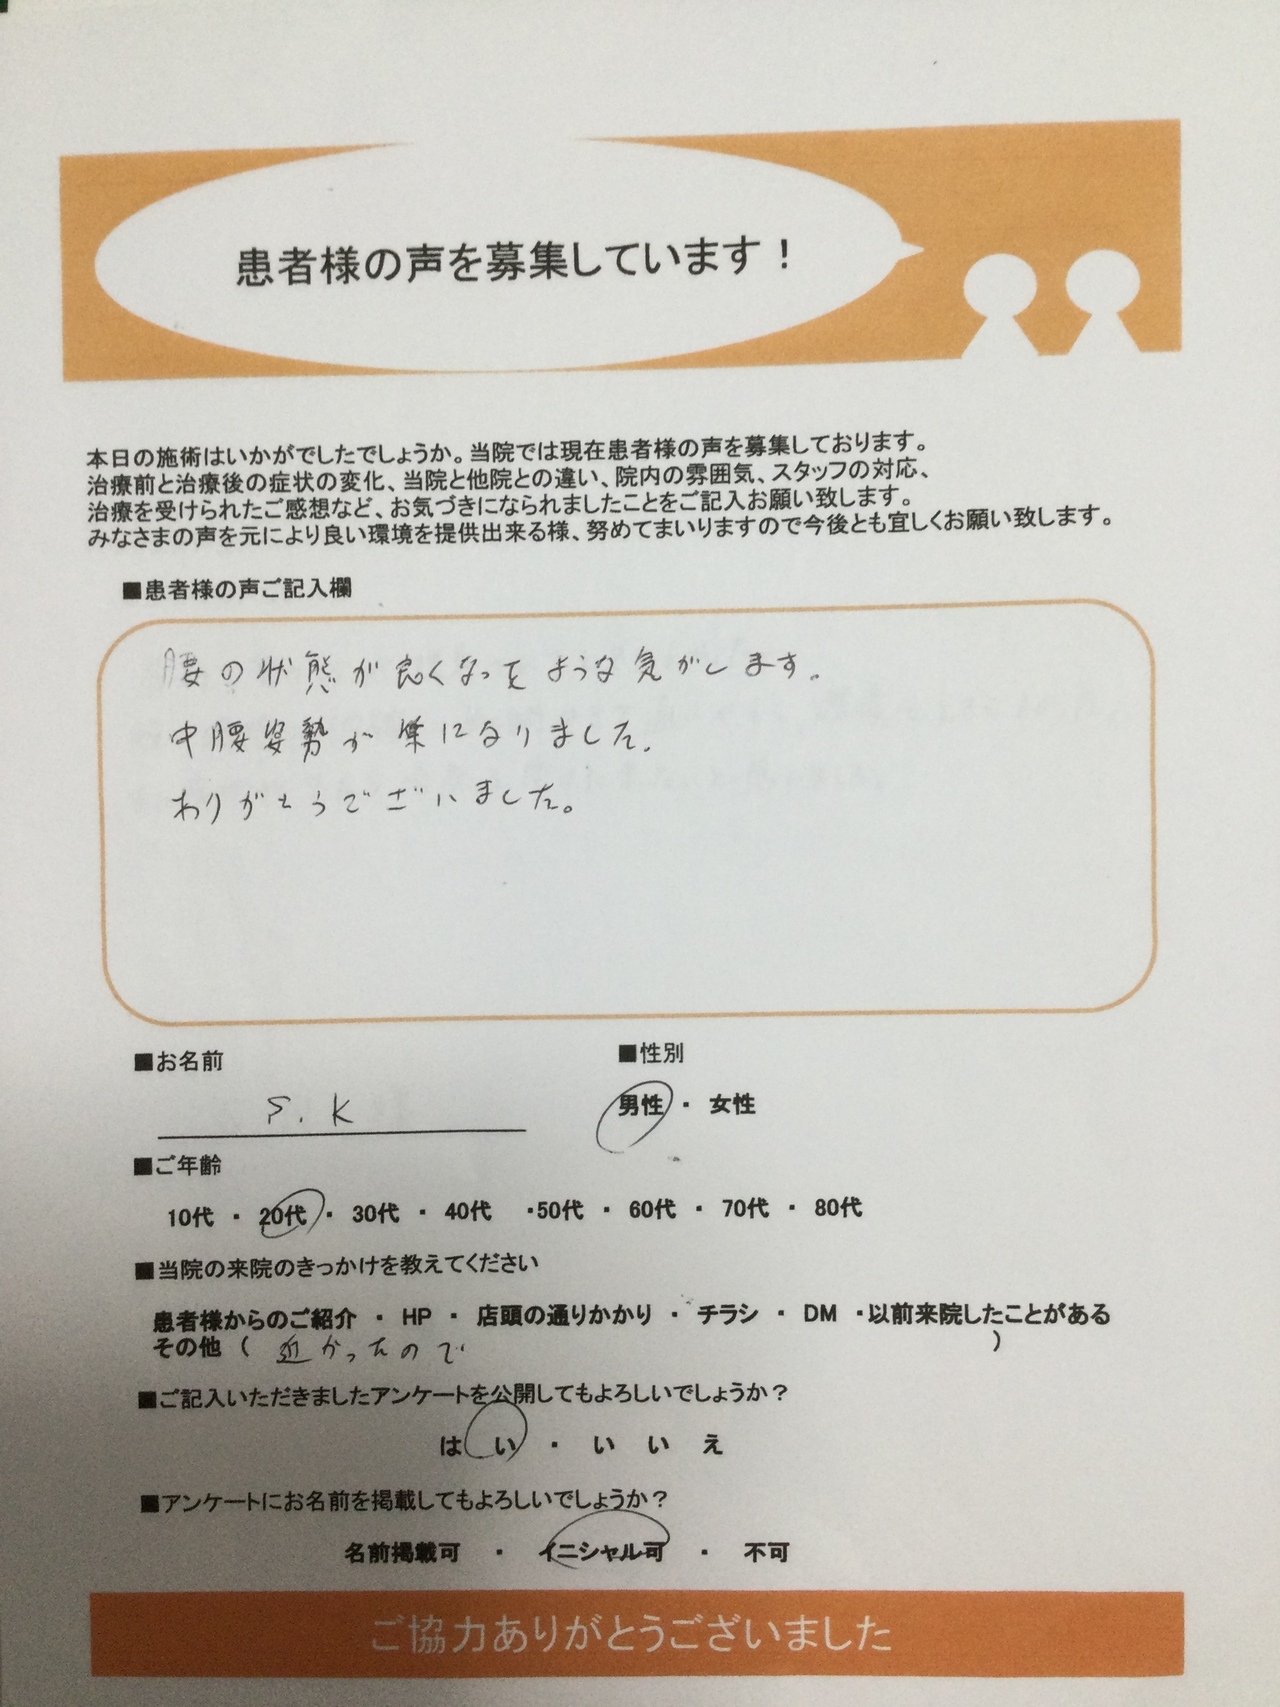 患者様の声を募集しています！
本日の施術はいかがでしたでしょうか。当院では現在患者様の声を募集しております。
治療前と治療後の症状の変化、当院と他院との違い、院内の雰囲気、スタッフの対応、
治療を受けられたご感想など、お気づきになられましたことをご記入お願い致します。
みなさまの声を元により良い環境を提供出来る様、努めてまいりますので今後とも宜しくお願い致します。
■患者様の声ご記入欄
腰の状態が良くなったような気がします。
中腰姿勢が楽になりました。
ありがとうございました。
■お名前 ■性別
S.K 男性 ・ 女性
■ご年齢
10代 ・ 20代 ・ 30代 ・ 40代 ・50代 ・ 60代 ・ 70代 ・ 80代
■当院の来院のきっかけを教えてください
患者様からのご紹介 ・ HP ・ 店頭の通りかかり ・ チラシ ・ DM ・以前来院したことがある
その他（ 近かったので ）
■ご記入いただきましたアンケートを公開してもよろしいでしょうか？
はい ・ いいえ
■アンケートにお名前を掲載してもよろしいでしょうか？
名前掲載可 ・ イニシャル可 ・ 不可
ご協力ありがとうございました